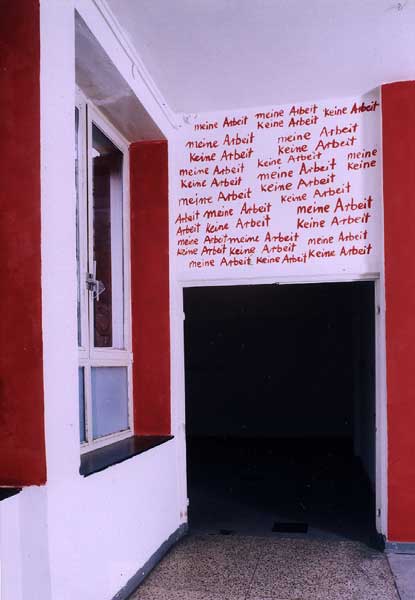 meine Arbeit meine Arbeit Keine Arbeit
Keine Arbeit
meine Arbeit meine Arbeit
Keine Arbeit Keine Arbeit
meine Arbeit Keine Arbeit meine
Keine Arbeit meine Arbeit Keine
meine Arbeit Keine Arbeit
Keine Arbeit
Arbeit meine Arbeit meine Arbeit
Arbeit Keine Arbeit Keine Arbeit
meine Arbeit meine Arbeit meine Arbeit
Keine Arbeit Keine Arbeit Keine Arbeit
meine Arbeit Keine Arbeit